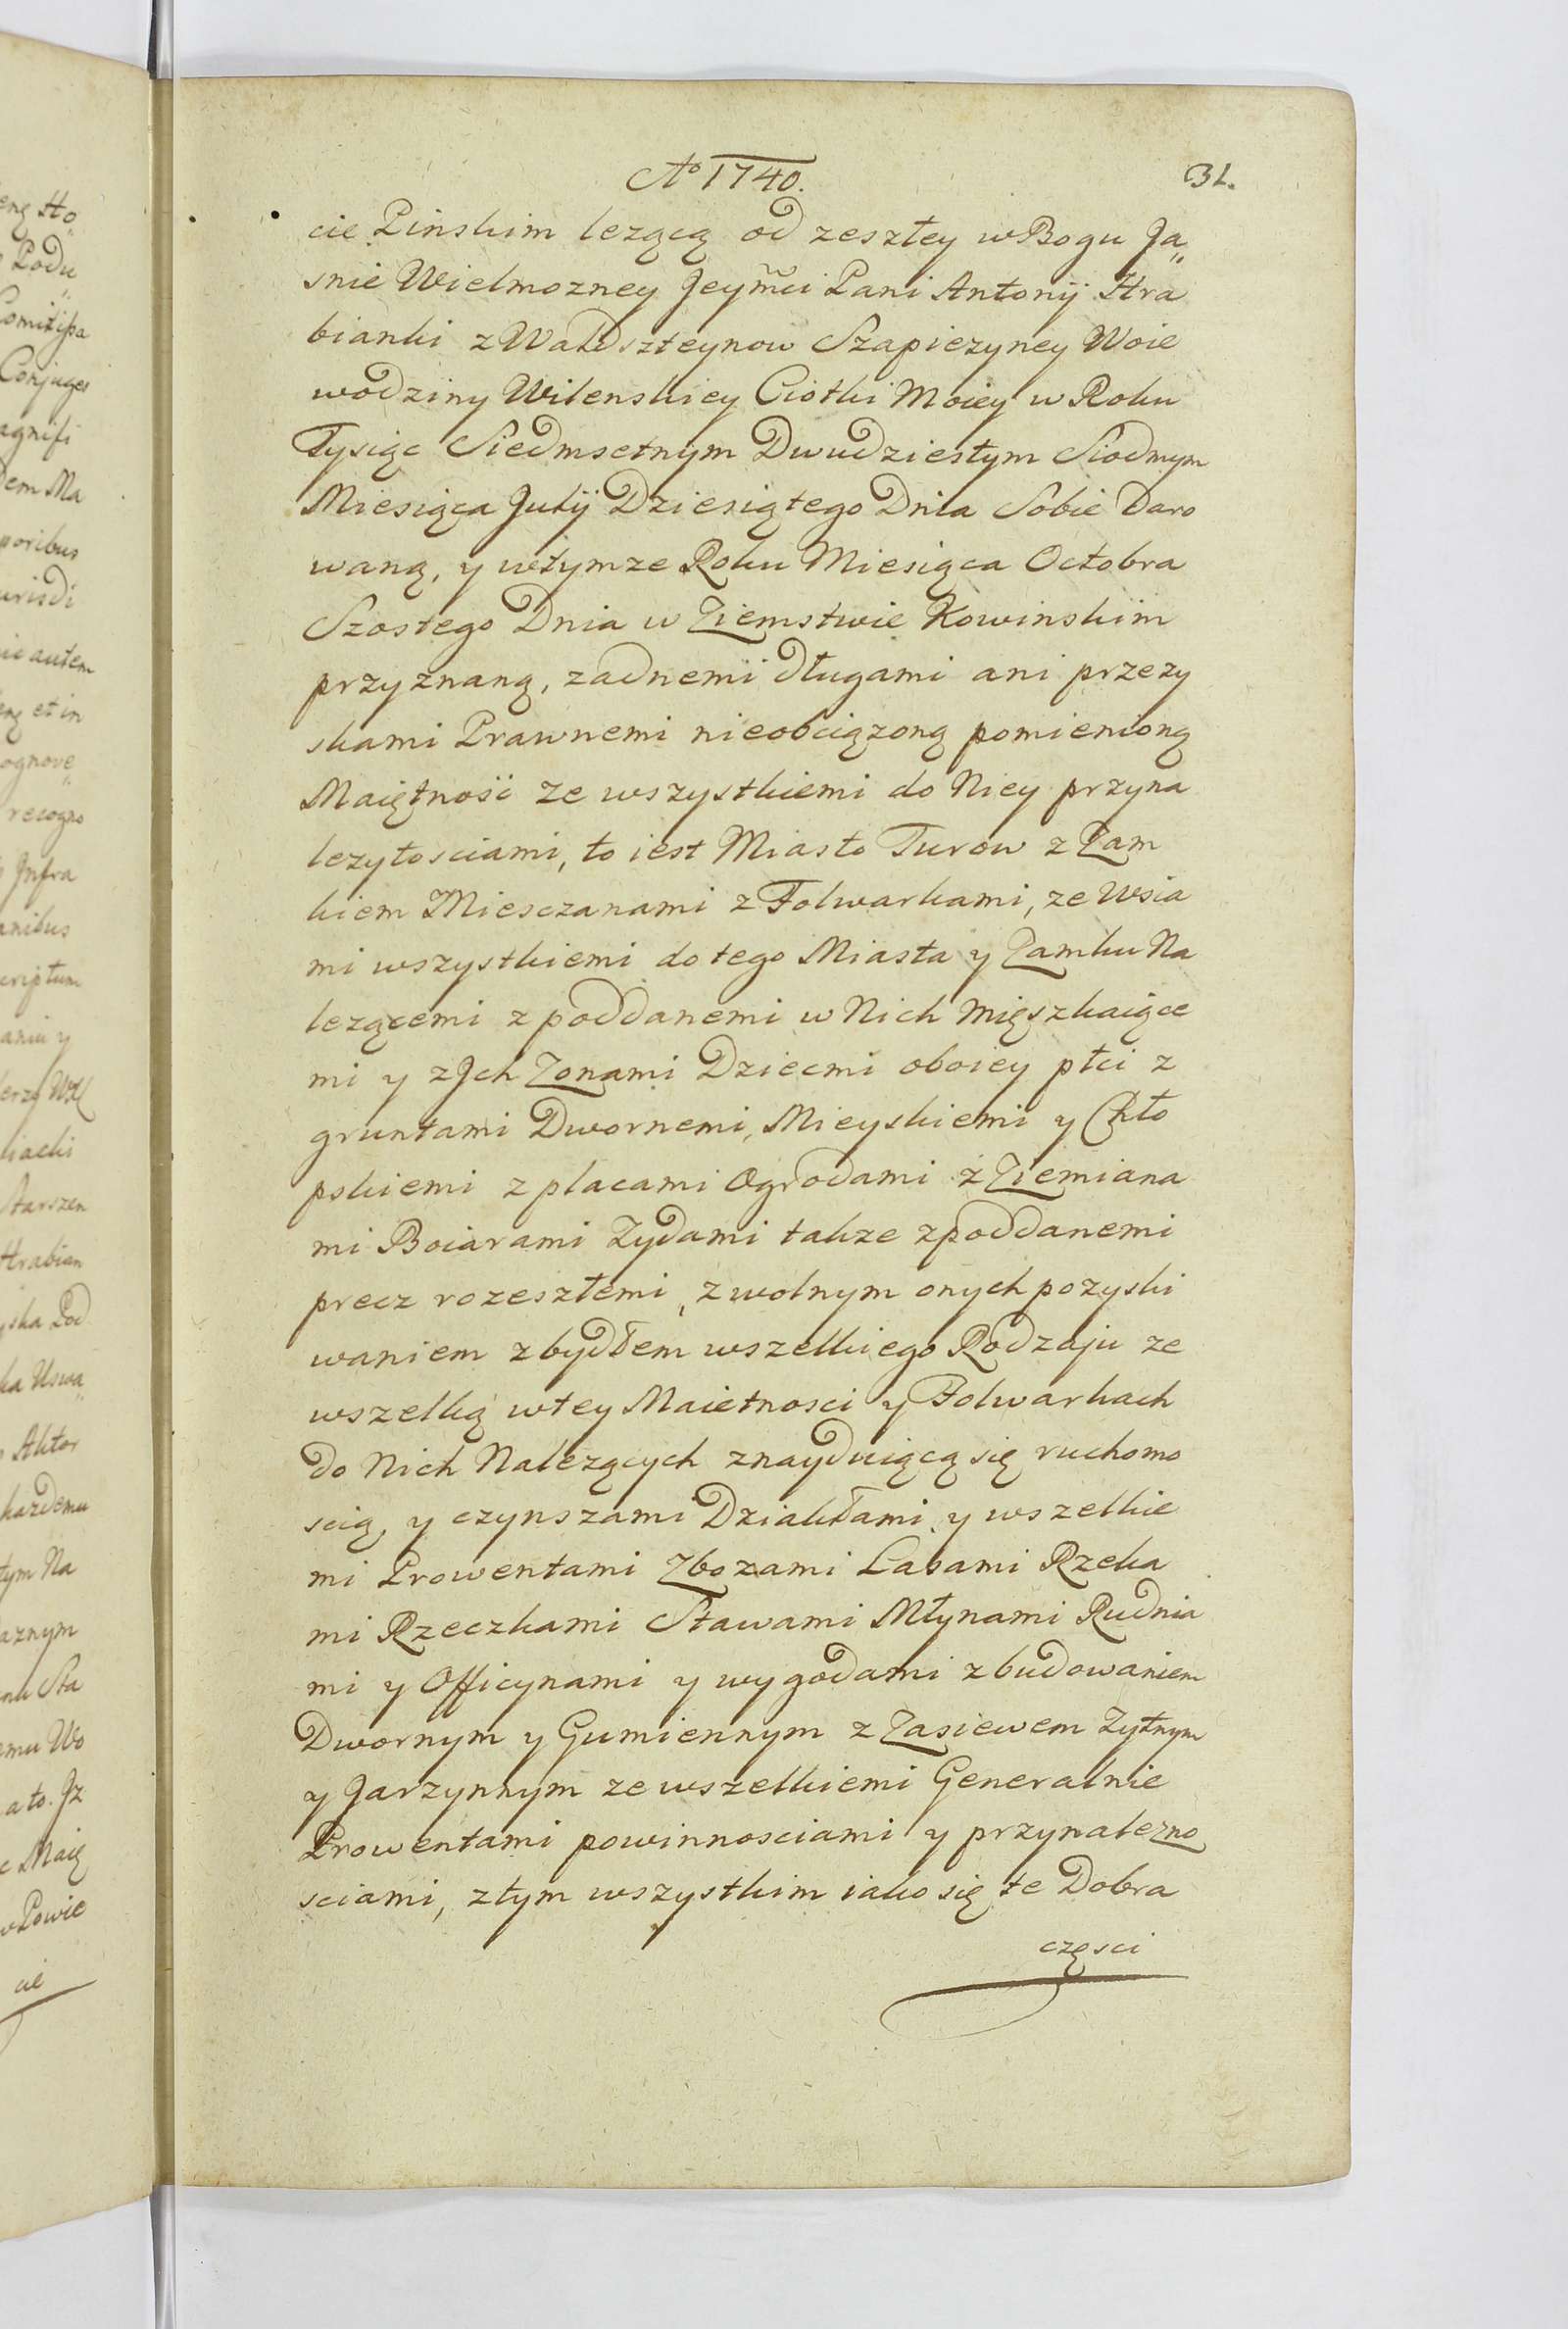 Aº 1740.
31.
cie Pinskim lezącą od zeszłey w Bogu Ja„
snie Wielmozney Jeymci Pani Antonij Hra
bianki z Waldszteynow Szapiezyney Woie
wodziny Wilenskiey Ciotki Moiey w Roku
Tysiąc Siedmsetnym Dwudziestym Siodmym
Miesiąca Julij Dziesiątego Dnia Sobie Daro
waną, y wtymze Roku Miesiąca Octobra
Szostego Dnia w Ziemstwie Kowinskim
przyznaną, zadnemi długami ani przezy
skami Prawnemi nieobciązoną pomienioną
Maiętność ze wszystkiemi do Niey przyna
lezytosciami, to iest Miasto Turow z Zam
kiem Miesczanami z Folwarkami, ze Wsia
mi wszystkiemi do tego Miasta y Zamku Na
lezącemi z poddanemi w Nich Mięszkaiące
mi y z Jch Zonami Dziecmi oboiey płci z
gruntami Dwornemi, Mieyskiemi y Chło
pskiemi z placami Ogrodami z Ziemiana
mi Boiarami Zydami takze z poddanemi
precz rozeszłemi, z wolnym onych pozyski
waniem z bydłem wszelkiego Rodzaju ze
wszelką wtey Maietnosci y Folwarkach
do Nich Nalezących znayduiącą się ruchomo
scią, y czynszami Dziakłami y wszelkie
mi Prowentami Zbozami Lasami Rzeka
mi Rzeczkami Stawami Młynami Rudnia
mi y Officynami y wygodami z budowaniem
Dwornym y Gumiennym z Zasiewem Zytnym
y Jarzynnym ze wszelkiemi Generalnie
Prowentami powinnosciami y przynalezno
sciami, z tym wszystkim iako się te Dobra
częsci